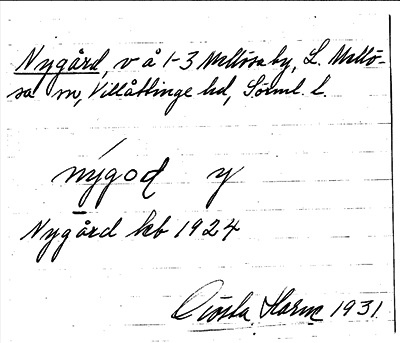 Nygård, v å 1-3 Mellösaby, L. Mellö-
sa sn, Villåttinge hd, Sörml. l.
nýgod y
Nygård kb 1924
Gösta Harm 1931